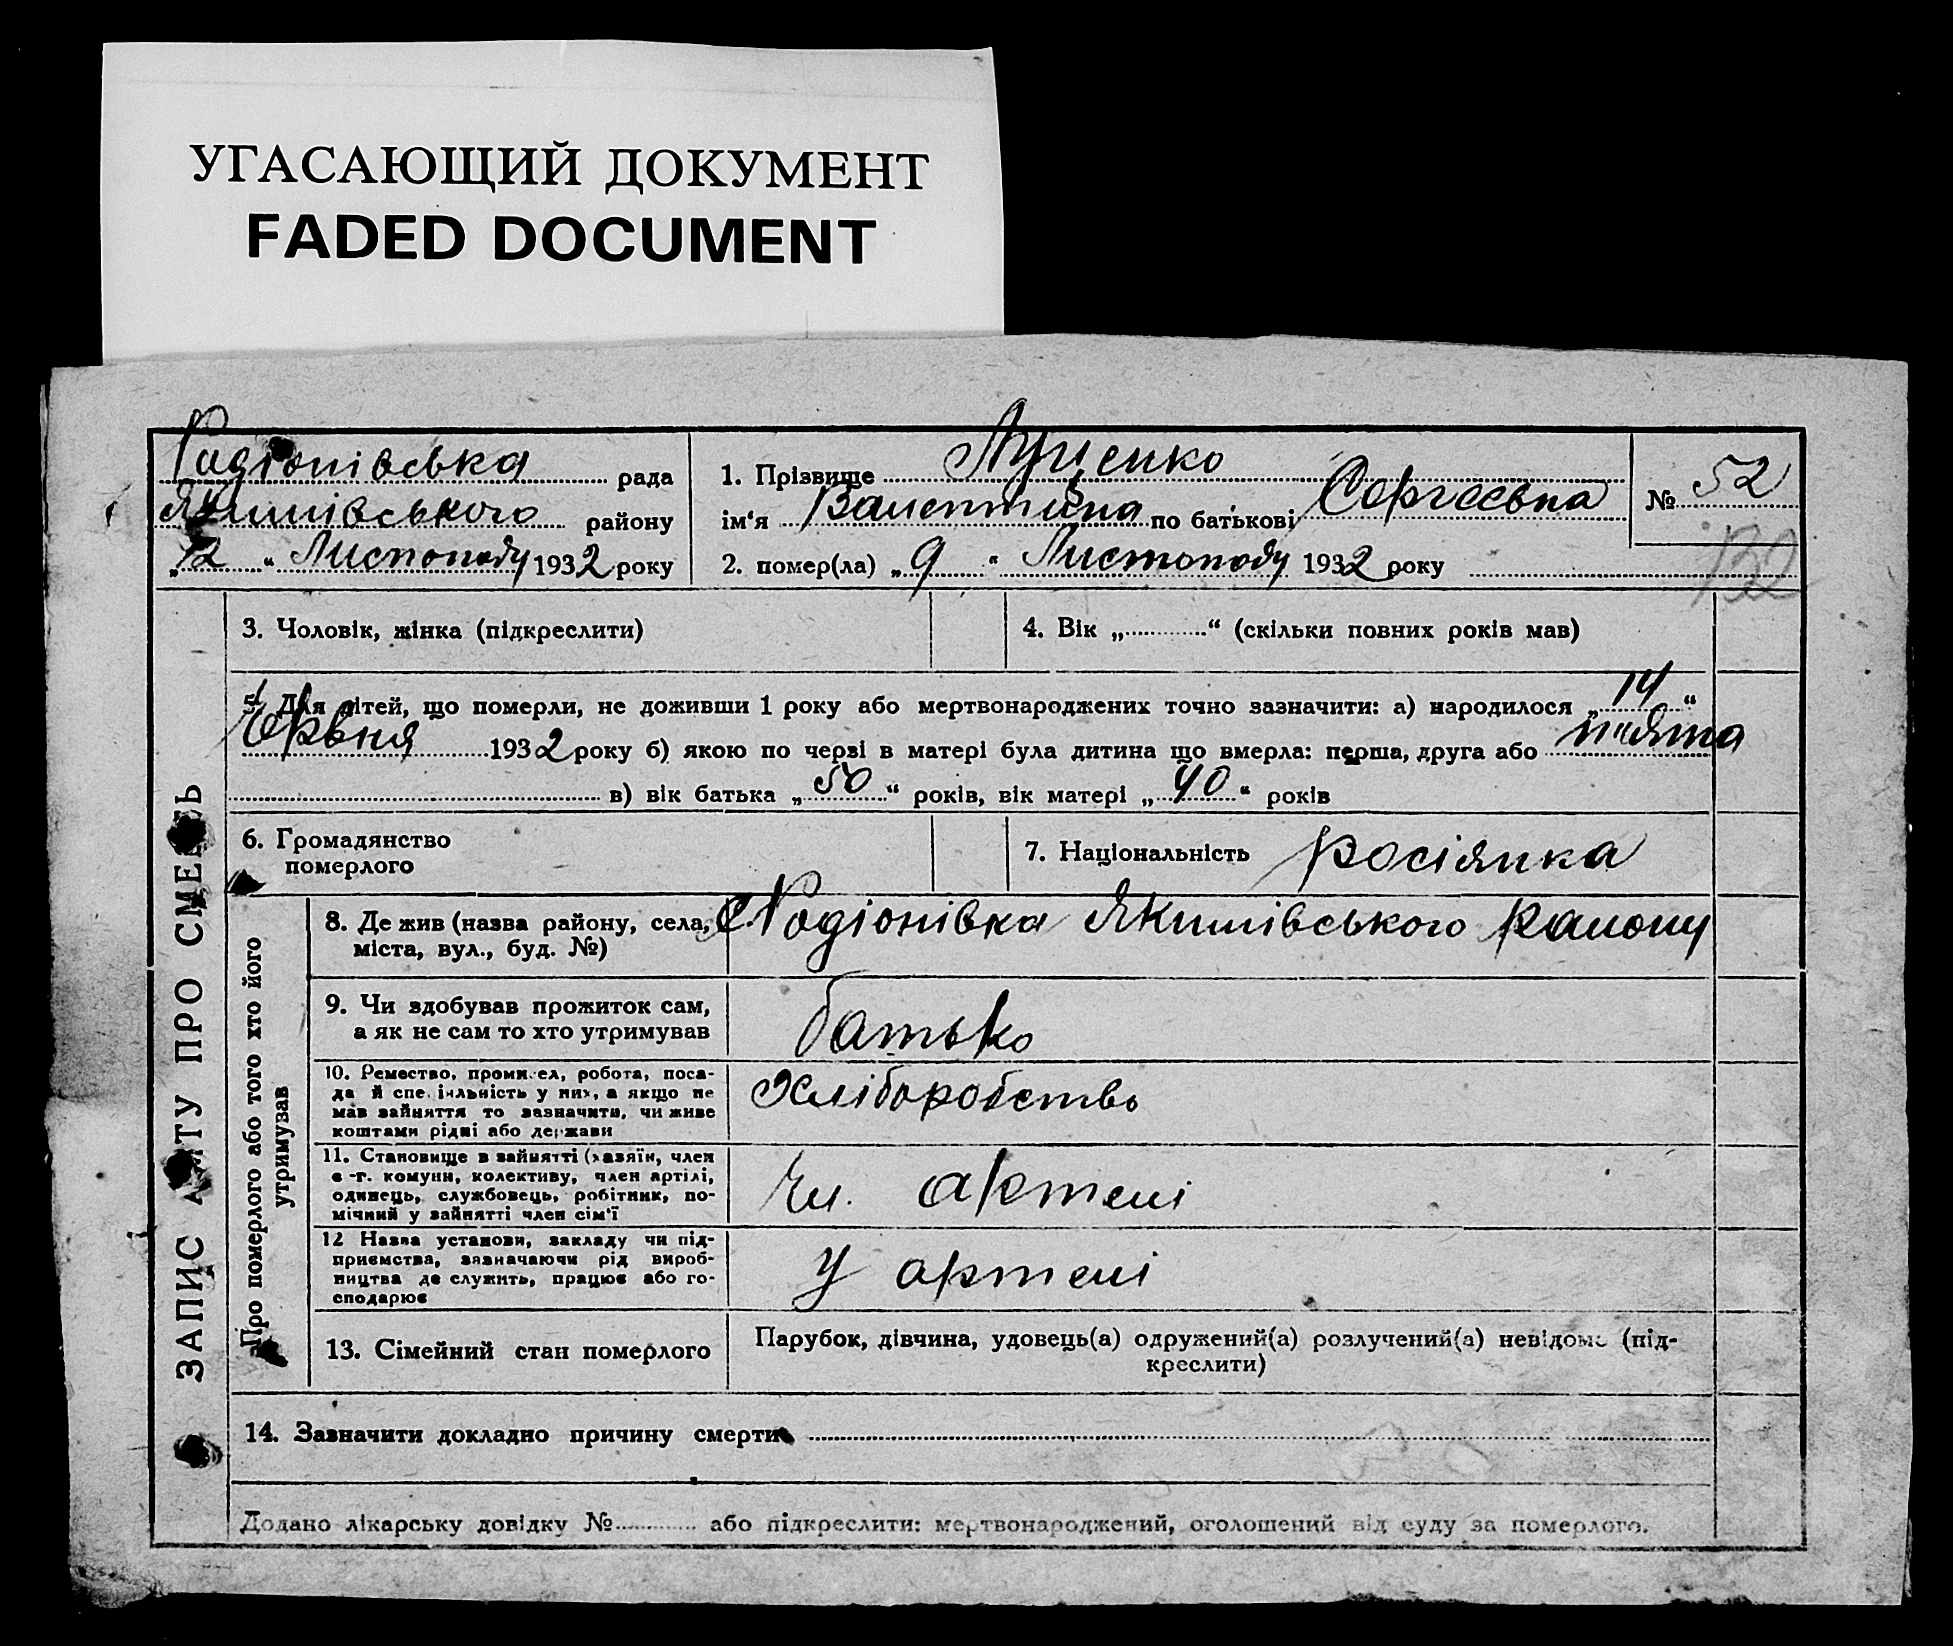 УГАСАЮЩИЙ ДОКУМЕНТ
FADED DOCUMENT
Радіонівська рада
Якимівського району
„12“ Листопаду 1932 року
1. Прізвище Луценко
ім‘я Валентина по батькові Сергеевна
2. помер(ла) „9“ Листопаду 1932 року
№ 52
132
3. Чоловік, жінка (підкреслити)
4. Вік „......“ (скільки повних років мав)
5. Для дітей, що померли, не доживши 1 року або мертвонароджених точно зазначити: а) народилося „14“
Червня 1932 року б) якою по черві в матері була дитина що вмерла: перша, друга або п'ята
в) вік батька „50“ років, вік матері „40“ років
6. Громадянство
померлого
7. Національність росіянка
8. Де жив (назва району, села,
міста, вул., буд. №)
с Радіонівка Якимівського району
9. Чи здобував прожиток сам,
а як не сам то хто утримував
батько
10. Ремество, промисел, робота, поса-
да й спеціальність у них, а якщо не
мав зайняття то зазначити, чи живе
коштами рідні або держави
Хліборобство
11. Становище в зайнятті (хазяїн, член
с.-г. комуни, колективу, член артілі,
одинець, службовець, робітник, по-
мічний у зайнятті член сім'ї
Чл. артелі
12 Назва установи, закладу чи під-
приємства, зазначаючи рід вироб-
ництва де служить, працює або го-
сподарює
У артелі
13. Сімейний стан померлого
Парубок, дівчина, удовець(а) одружений(а) розлучений(а) невідомо (під-
креслити)
14. Зазначити докладно причину смерти
Додано лікарську довідку №...... або підкреслити: мертвонароджений, оголошений від суду за померлого.
ЗАПИС АКТУ ПРО СМЕРТЬ
Про померлого або того хто його
утримував